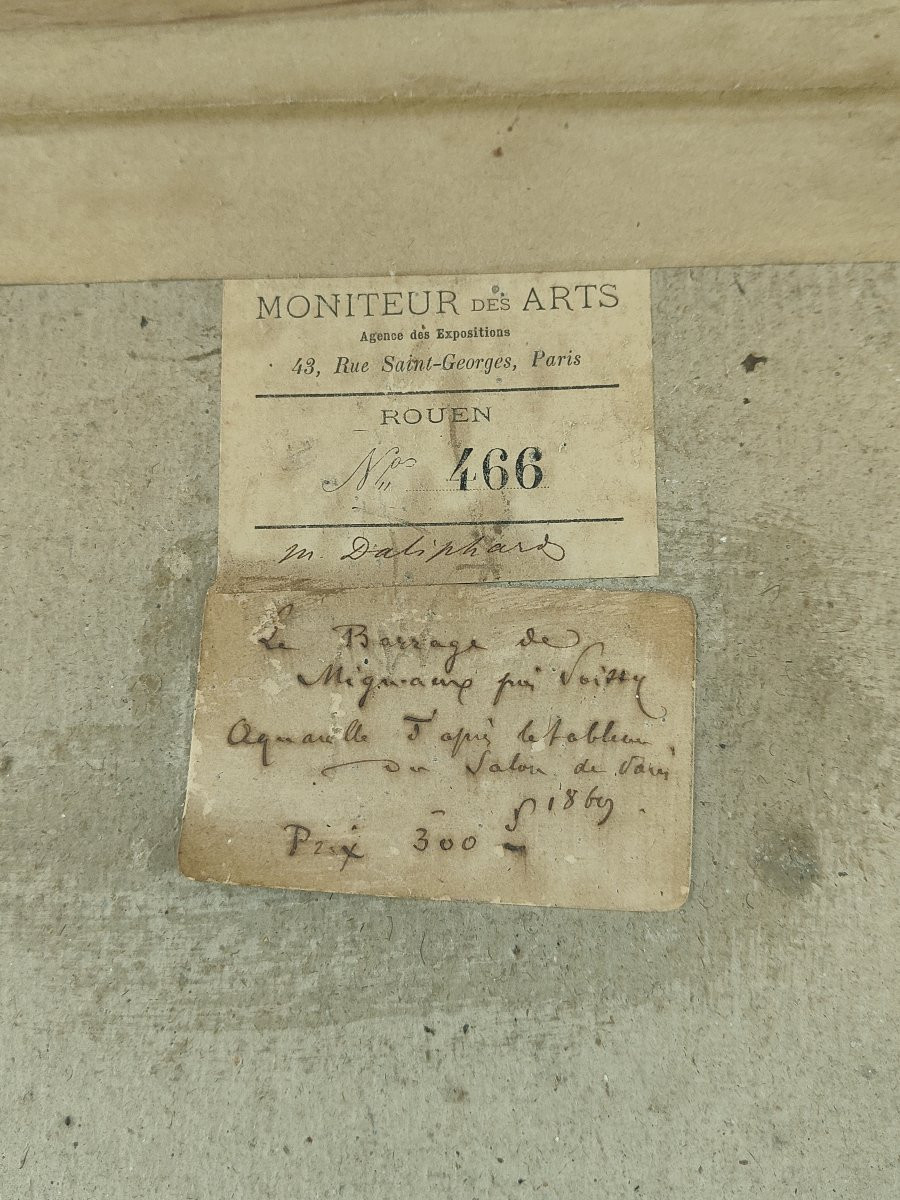 MONITEUR DES ARTS
Agence des Expositions
43, Rue Saint-Georges, Paris
ROUEN
No 466
m. Daliphard
Le Barrage de
Migneaux près Poissy
Aquarelle d'après le tableau
du Salon de Paris
1869.
Prix 300